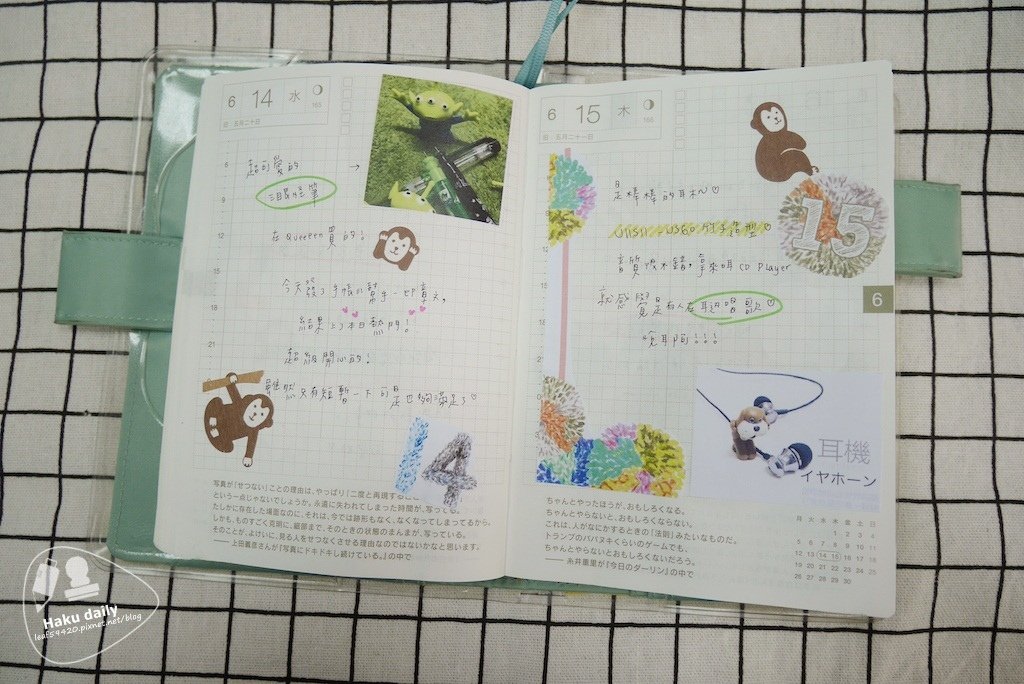 6 14 水
165
旧 五月二十日
超可愛的 →
三眼怪筆
在 Queeen買的!
今天發了手帳小幫手-印章文,
結果上了本日熱門!
超級開心的!
雖然只有短暫一下可是也夠滿足了♡
6
9
12
15
18
21
14
写真が「せつない」ことの理由は、やっぱり「二度と再現すること
という一点じゃないでしょうか。永遠に失われてしまった時間が、写っている。
たしかに存在した場面なのに、それは、今では跡形もなく、なくなってしまってるから。
しかも、ものすごく克明に、細部まで、そのときの状態のまんまが、写っている。
そのことが、よけいに、見る人をせつなくさせる理由なのではないかなと思います。
── 上田義彦さんが『写真にドキドキし続けている。』の中で
6 15 木
166
旧 五月二十一日
15
是棒棒的耳机♡
音質很不錯,拿來聽 CD Player
就感覺是有人在耳邊唱歌♡
6
12
15
18
21
耳機
イヤホーン
ちゃんとやったほうが、おもしろくなる。
ちゃんとやらないと、おもしろくならない。
これは、人がなにかするときの「法則」みたいなものだ。
トランプのババヌキくらいのゲームでも、
ちゃんとやらないとおもしろくないだろう。
── 糸井重里が『今日のダーリン』の中で
月 火 水 木 金 土 日
1 2 3 4
5 6 7 8 9 10 11
12 13 14 15 16 17 18
19 20 21 22 23 24 25
26 27 28 29 30
Haku daily
leaf59420.pixnet.net/blog